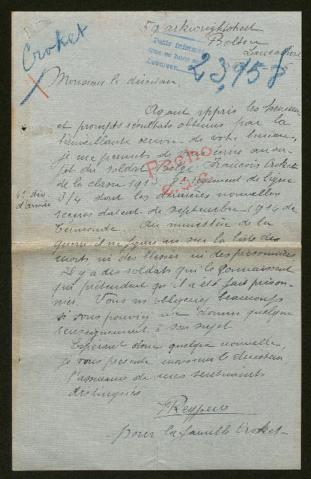 Croket
5 Parkwright street
Bolton
Lancashire
23,958
Monsieur le directeur
Ayant appris les heureux
et prompts résultats obtenus par la
bienveillante œuvre de votre bureau,
je me permets de
du soldat Belge François Croket
de la classe 1913 régiment de ligne
3/4 dont les dernières nouvelles
reçues datent de septembre 1914 de
Termonde. Au ministère de la
guerre il ne figure ni sur la liste des
morts ni des blessés ni des prisonniers
Il y a des soldats qui le connaissent
qui prétendent qu'il a été fait prison-
nier. Vous nous obligeriez beaucoup
si vous pouviez me donner quelque
renseignement à son sujet
Espérant donc quelque nouvelle,
je vous présente monsieur le directeur
l'assurance de mes sentiments
distingués
pour la famille Croket
1e div.
d'armée